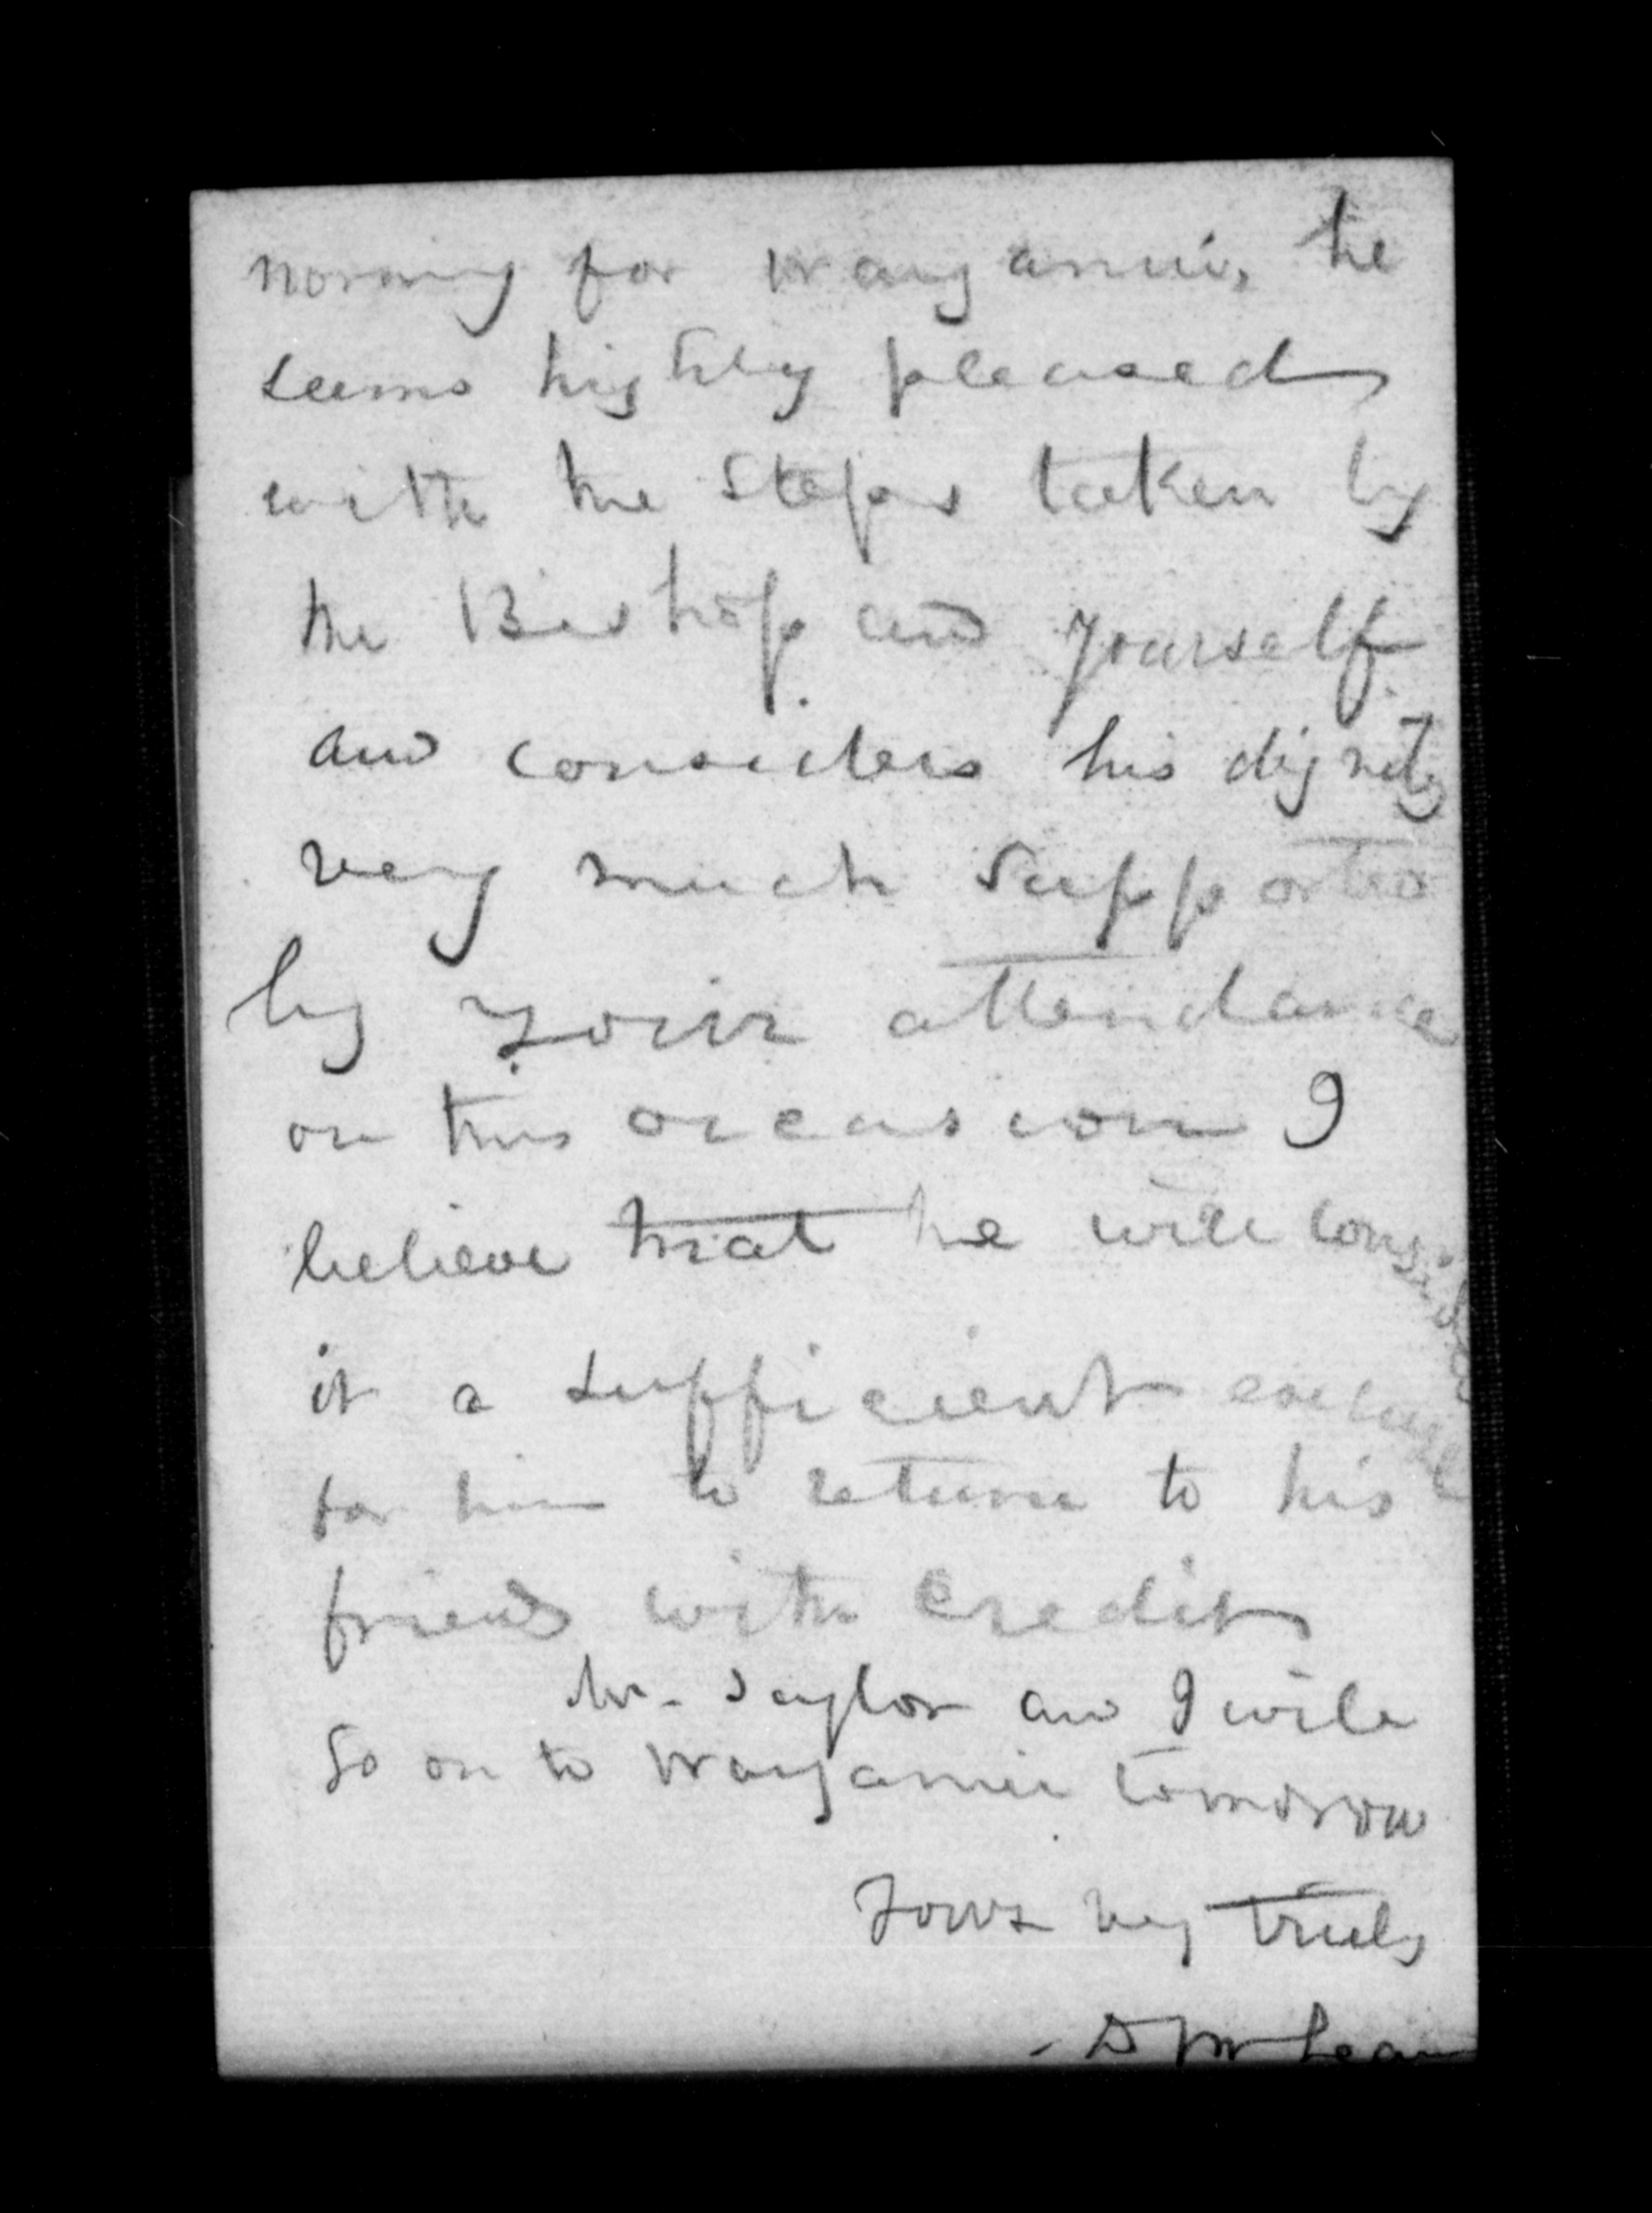 morning for Wanganui, he
seems highly pleased
with the steps taken by
the Bishop and yourself
and considers his dignity
very much supported
by your attendance
on this occasion I
believe that he will consider
it a sufficient excuse
for him to return to his
friends with credit
Mr. Taylor and I will
go on to Wanganui tomorrow
Yours very truly
D McLean